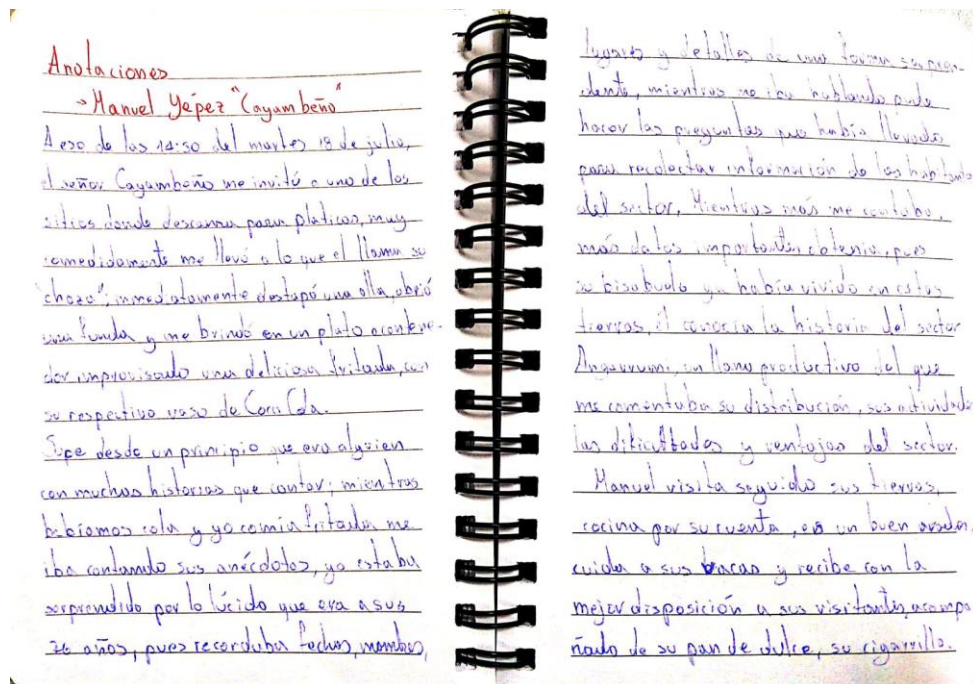 Anotaciones
→ Manuel Yépez "Cayambeño"
A eso de las 14:30 del martes 18 de julio,
el señor Cayambeño me invitó a uno de los
sitios donde descansa para platicar, muy
comedidamente me llevó a lo que el llama su
"choza"; inmediatamente destapó una olla, abrió
una funda y me brindó en un plato acontene-
dor improvisado una deliciosa fritada, con
su respectivo vaso de Coca Cola.
Supe desde un principio que era alguien
con muchas historias que contar; mientras
bebíamos cola y yo comía fritada me
iba contando sus anécdotas, yo estaba
sorprendido por lo lúcido que era a sus
años, pues recordaba fechas, nombres,
lugares y detalles de una forma sorpren-
dente, mientras me iba hablando pude
hacer las preguntas que había llevado
para recolectar información de los habitantes
del sector. Mientras más me contaba,
más datos importantes obtenía, pues
su bisabuelo ya había vivido en estas
tierras, él conocía la historia del sector
Angarrumi, un llano productivo del que
me comentaba su distribución, sus actividades
las dificultades y ventajas del sector.
Manuel visita seguido sus tierras,
cocina por su cuenta, es un buen arador,
cuida a sus vacas y recibe con la
mejor disposición a sus visitantes, acompa
ñado de su pan de dulce, su cigarrillo.